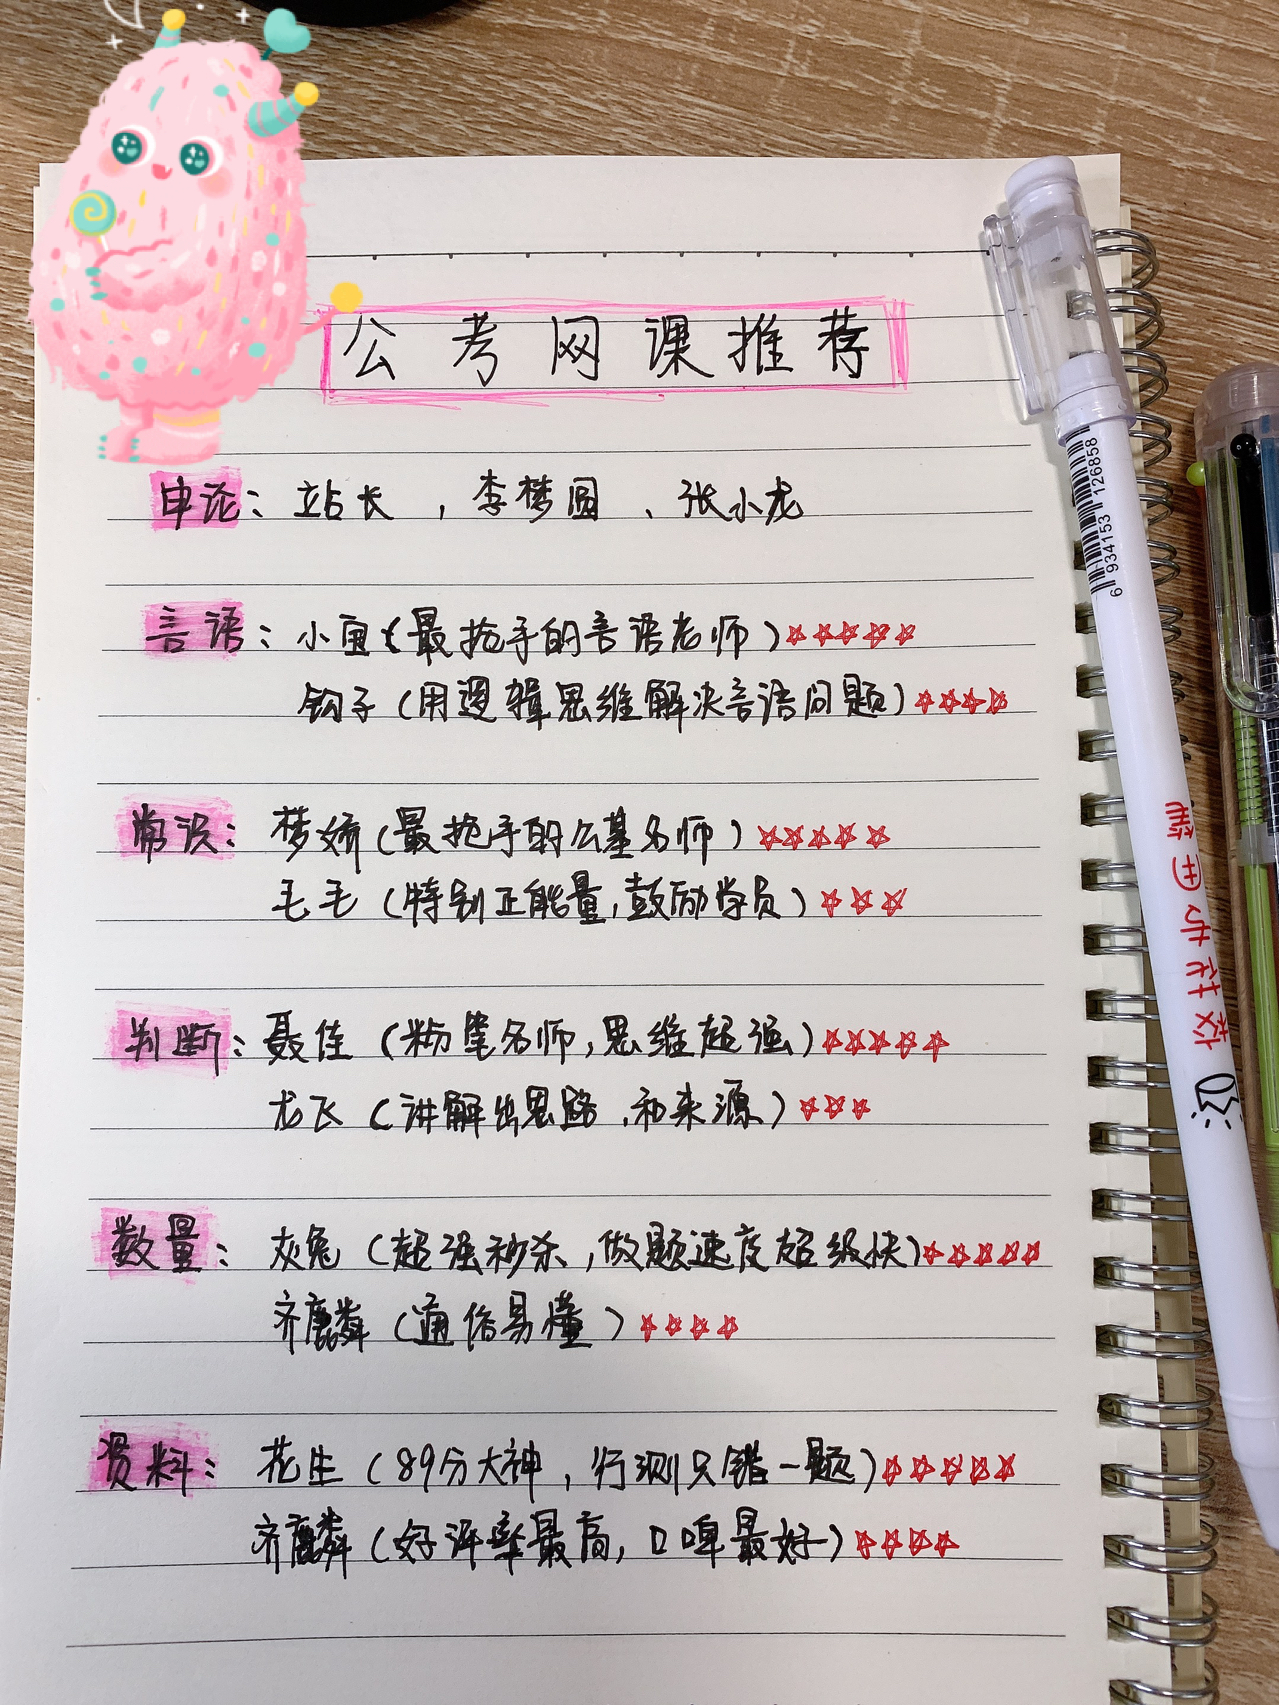 公考网课推荐
申论：站长，李梦圆、张小龙
言语：小鱼（最抢手的言语老师）☆☆☆☆☆
钩子（用逻辑思维解决言语问题）☆☆☆☆
常识：梦娇（最抢手的公基名师）☆☆☆☆☆
毛毛（特别正能量，鼓励学员）☆☆☆
判断：聂佳（粉笔名师，思维超强）☆☆☆☆☆
龙飞（讲解出思路，和来源）☆☆☆
数量：灰兔（超强秒杀，做题速度超级快）☆☆☆☆☆
齐麟（通俗易懂）☆☆☆☆
资料：花生（89分大神，行测只错一题）☆☆☆☆☆
齐麟（好评率最高，口啤最好）☆☆☆☆
6 934153 126858
校社专用笔